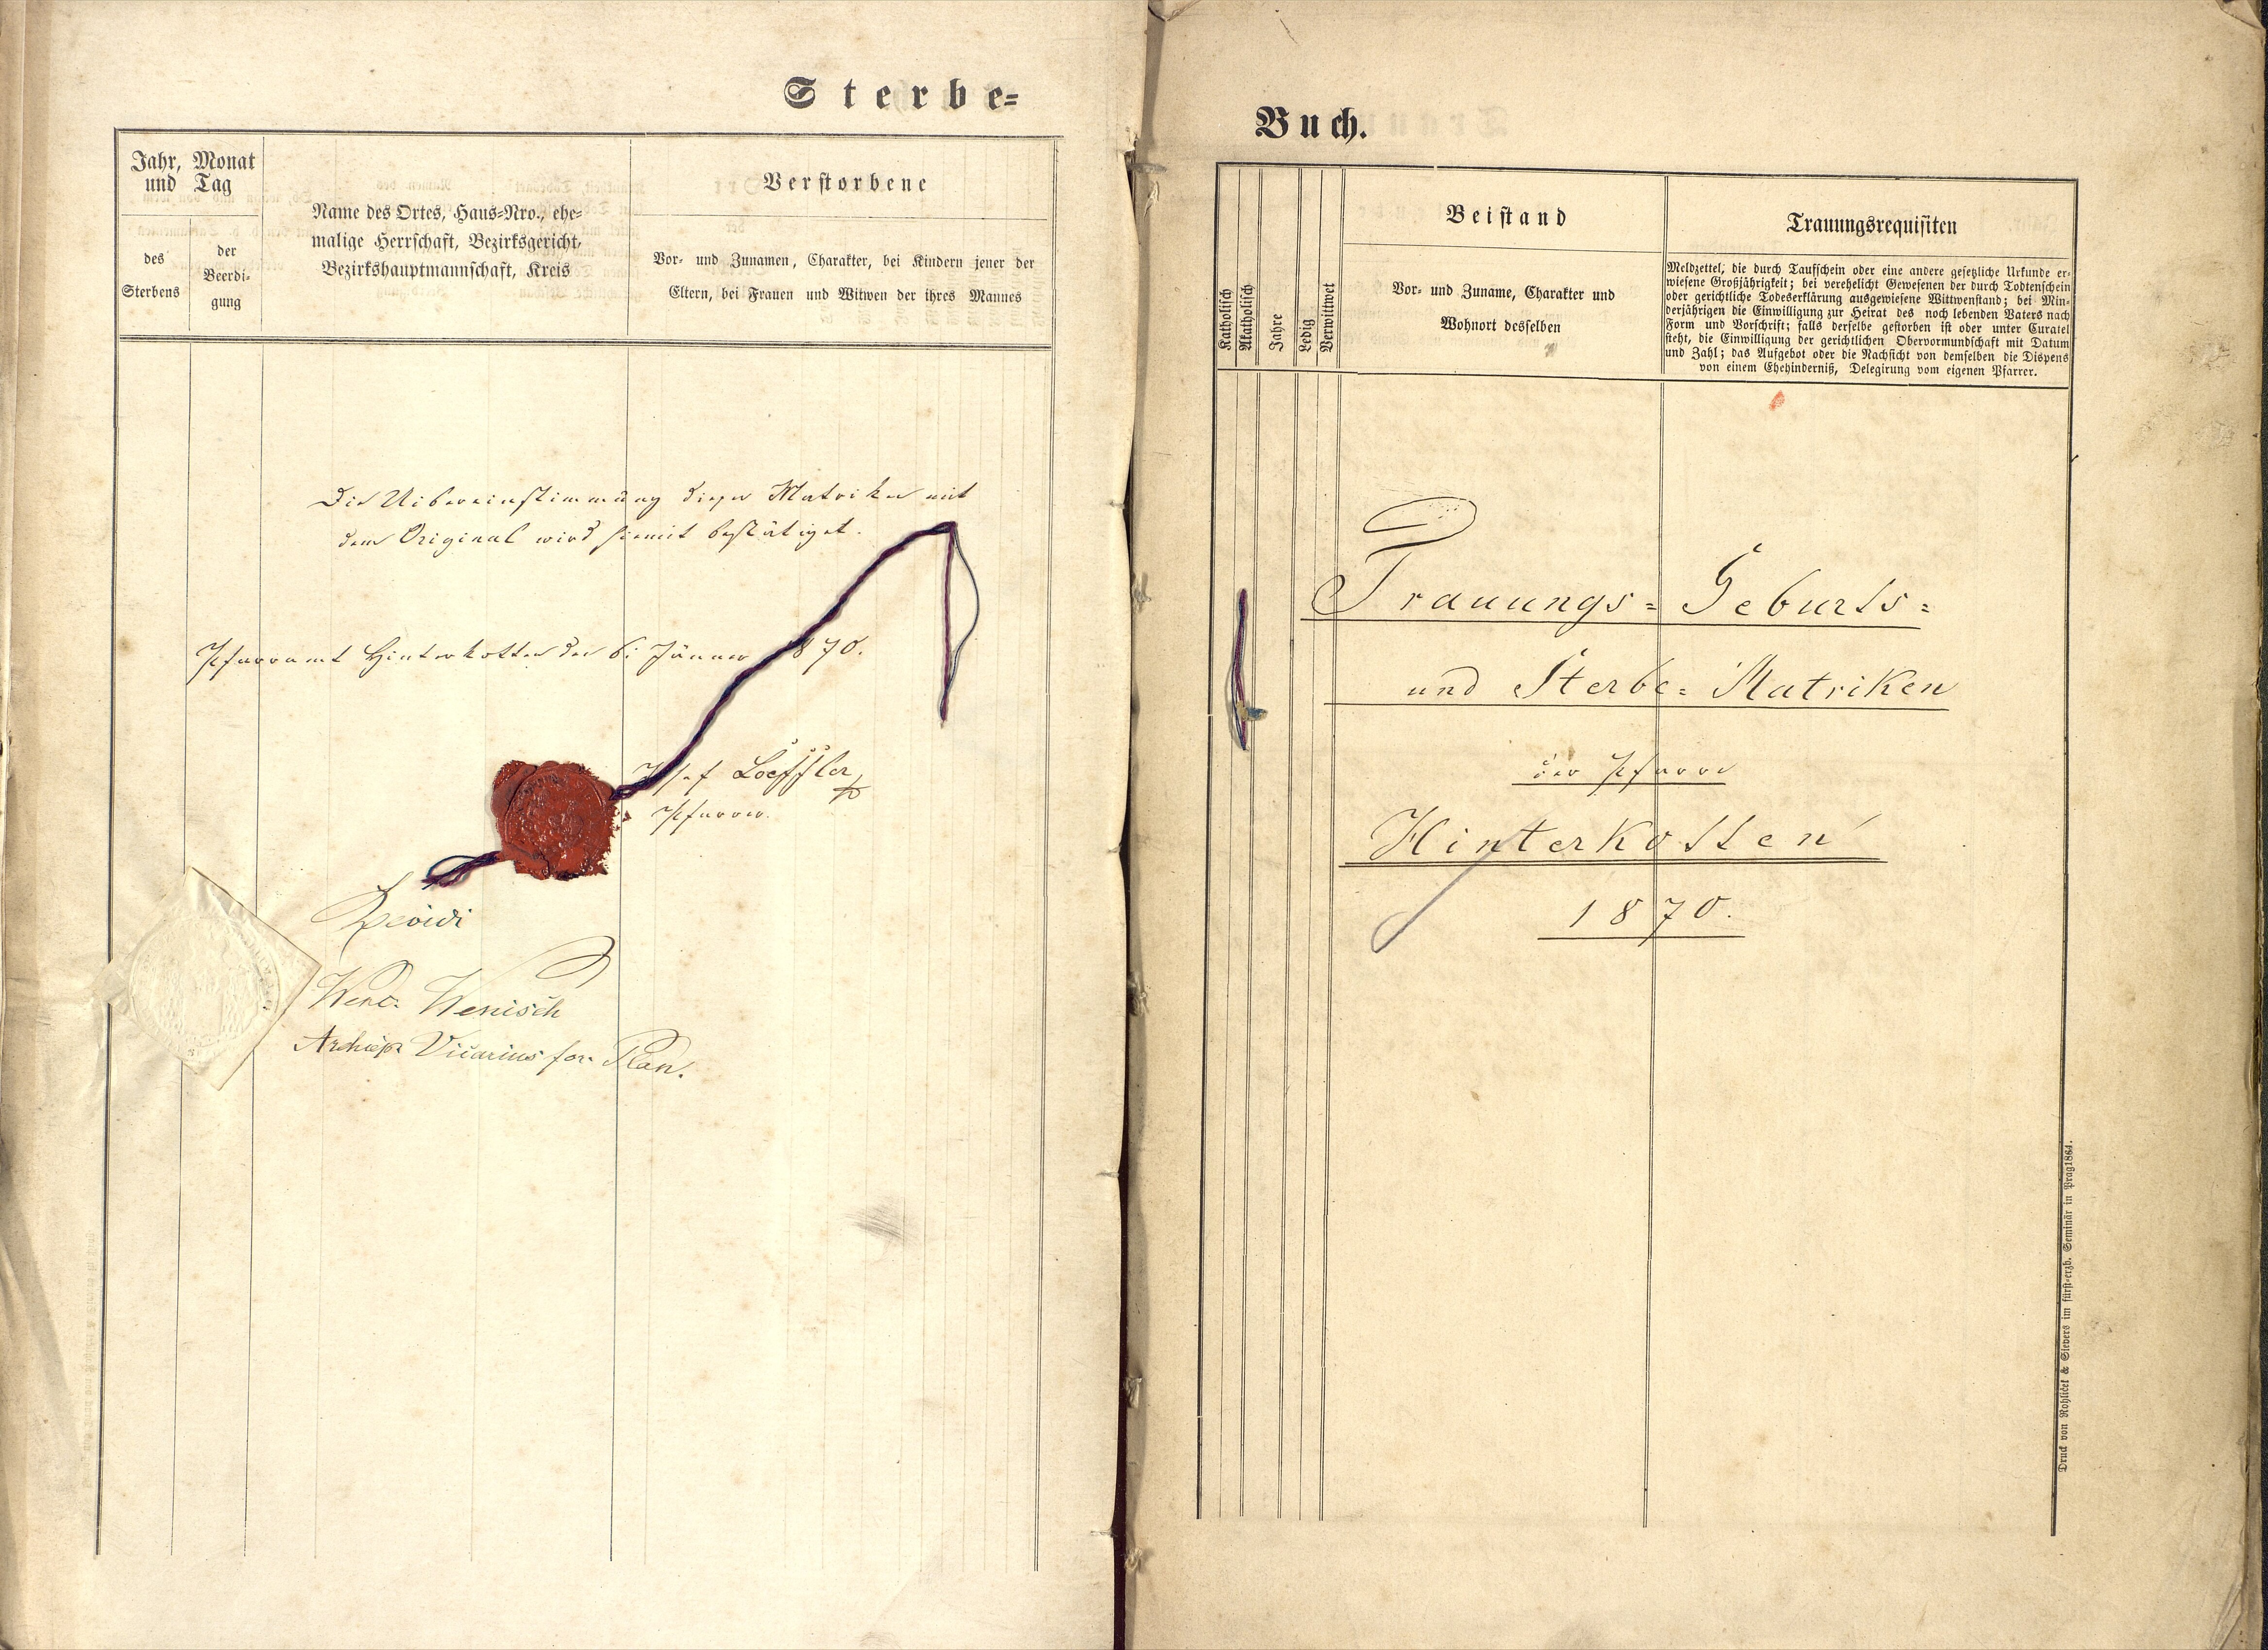 Sterbe=
Jahr, Monat
und Tag
des
Sterbens
der
Beerdi-
gung
Name des Ortes, Haus=Nro., ehe=
malige Herrschaft, Bezirksgericht,
Bezirkshauptmannschaft, Kreis
Verstorbene
Vor- und Zunamen, Charakter, bei Kindern jener der
Eltern, bei Frauen und Witwen der ihres Mannes
Die Uibereinstimmung dieser Matriken mit
dem Original wird hiemit bestätiget.
Pfarramt Hinterkotten den 6: Jänner 1870.
Josef Loeffler
Pfarrer.
Revidi
Wenc. Wenisch
Archiep. Vicarius for. Plan.
Buch.
Katholisch
Akatholisch
Jahre
Ledig
Verwittwet
Beistand
Vor- und Zuname, Charakter und
Wohnort desselben
Trauungsrequisiten
Meldzettel, die durch Taufschein oder eine andere gesetzliche Urkunde er=
wiesene Großjährigkeit; bei verehelicht Gewesenen der durch Todtenschein
oder gerichtliche Todeserklärung ausgewiesene Wittwenstand; bei Min=
derjährigen die Einwilligung zur Heirat des noch lebenden Vaters nach
Form und Vorschrift; falls derselbe gestorben ist oder unter Curatel
steht, die Einwilligung der gerichtlichen Obervormundschaft mit Datum
und Zahl; das Aufgebot oder die Nachsicht von demselben die Dispens
von einem Ehehinderniß, Delegirung vom eigenen Pfarrer.
Trauungs= Geburts=
und Sterbe= Matriken
der Pfarre
Hinterkotten
1870.
Druck von Rohliček & Sievers im fürst=erzb. Seminär in Prag 1864.